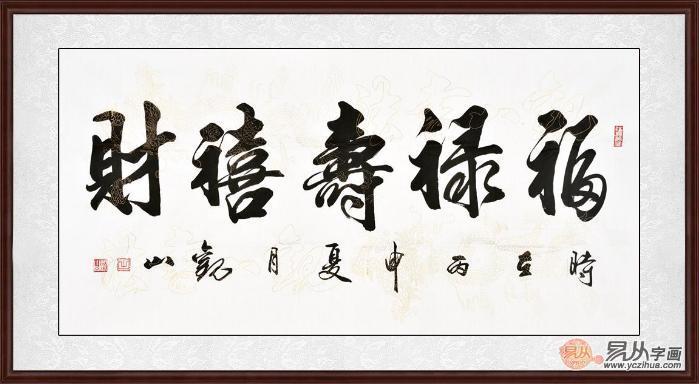 福禄壽禧財
時在丙申夏月觀山
易从
易从字画
www.yczihua.com